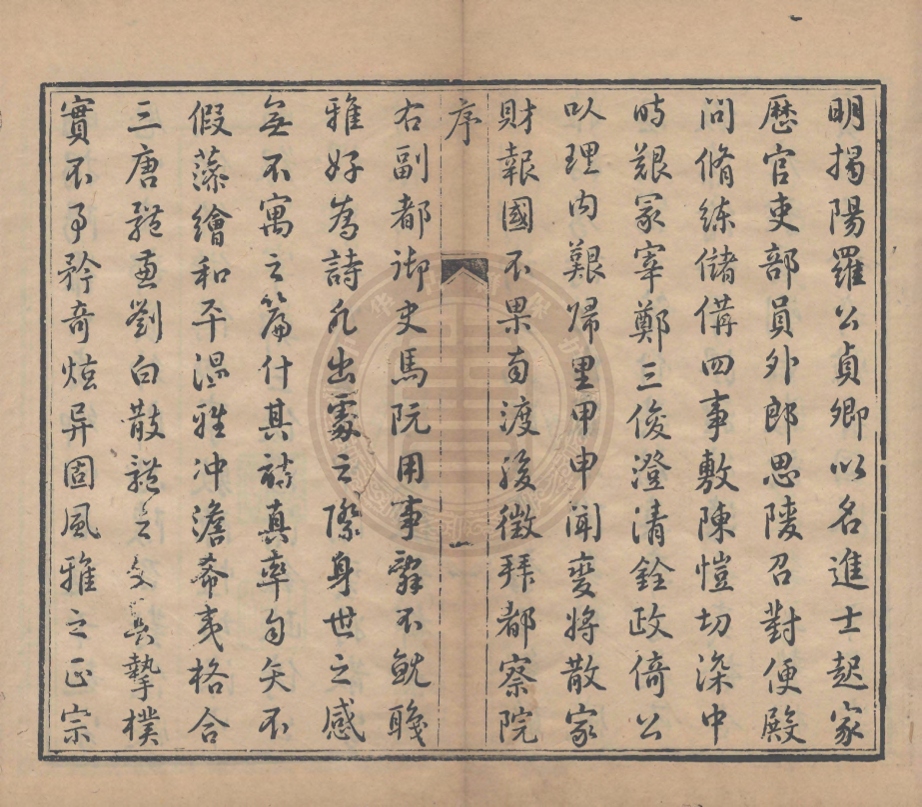 明揭陽羅公貞卿以名進士起家
歷官吏部員外郎思陵召對便殿
問脩練儲備四事敷陳愷切深中
時艱冢宰鄭三俊澄清銓政倚公
以理內艱歸里甲申聞變將散家
財報國不果南渡後徵拜都察院
序
一
右副都御史馬阮用事辭不就職
雅好為詩凡出處之際身世之感
無不寓之篇什其詩真率自矢不
假藻繪和平溫雅冲澹希夷格合
三唐體兼劉白散體之文真摯樸
實不事矜奇炫异固風雅之正宗